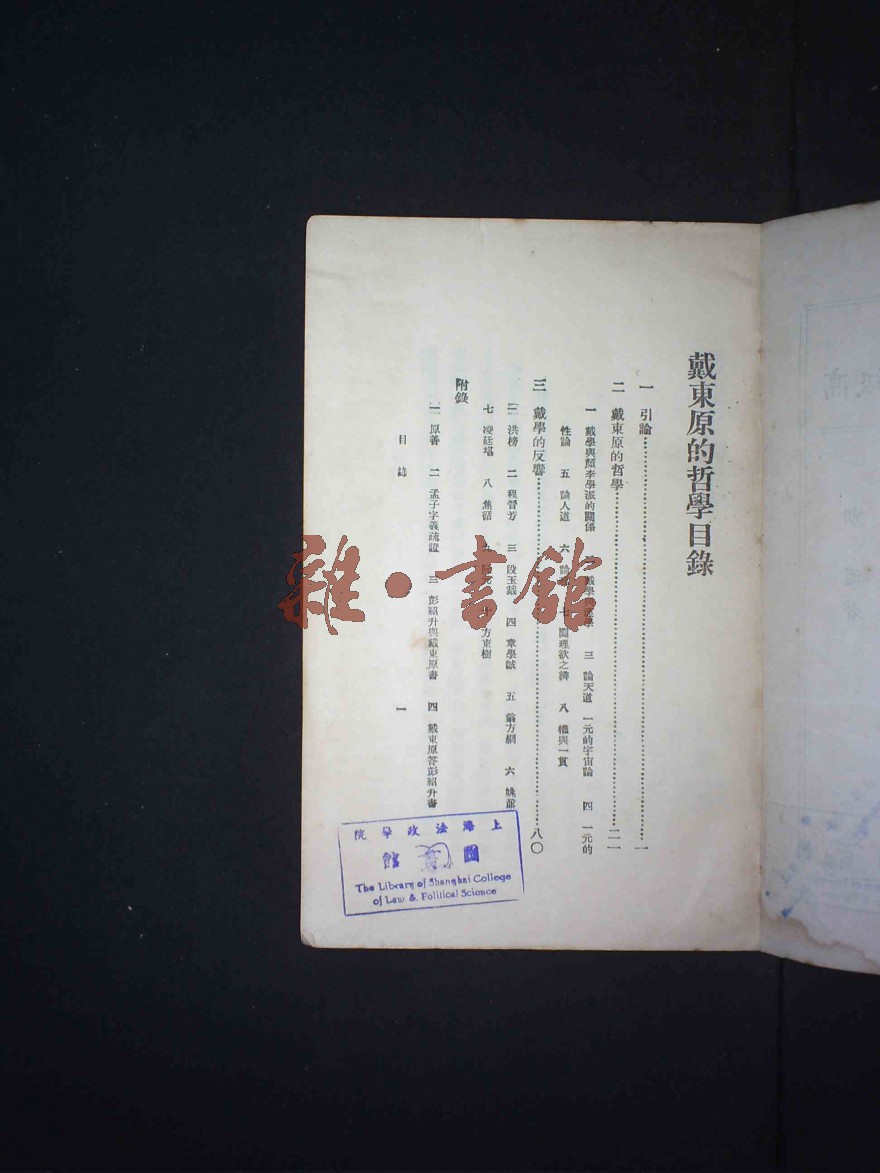 戴東原的哲學目錄
一 引論 一
二 戴東原的哲學 二一
一 戴學與顏李學派的關係 戴學 學 三 論天道 一元的宇宙論 四 一元的
性論 五 論人道 六 論 七 闢理欲之辨 八 權與一貫
三 戴學的反響 八〇
洪榜 二 程晉芳 三 段玉裁 四 章學誠 五 翁方綱 六 姚鼐
七 凌廷堪 八 焦循 九 阮元 十 方東樹
附錄
一 原善 二 孟子字義疏證 三 彭紹升與戴東原書 四 戴東原答彭紹升書
目錄 一
雜·書館
上海法政學院
圖 館
The Library of Shanghai College
of Law & Political Science